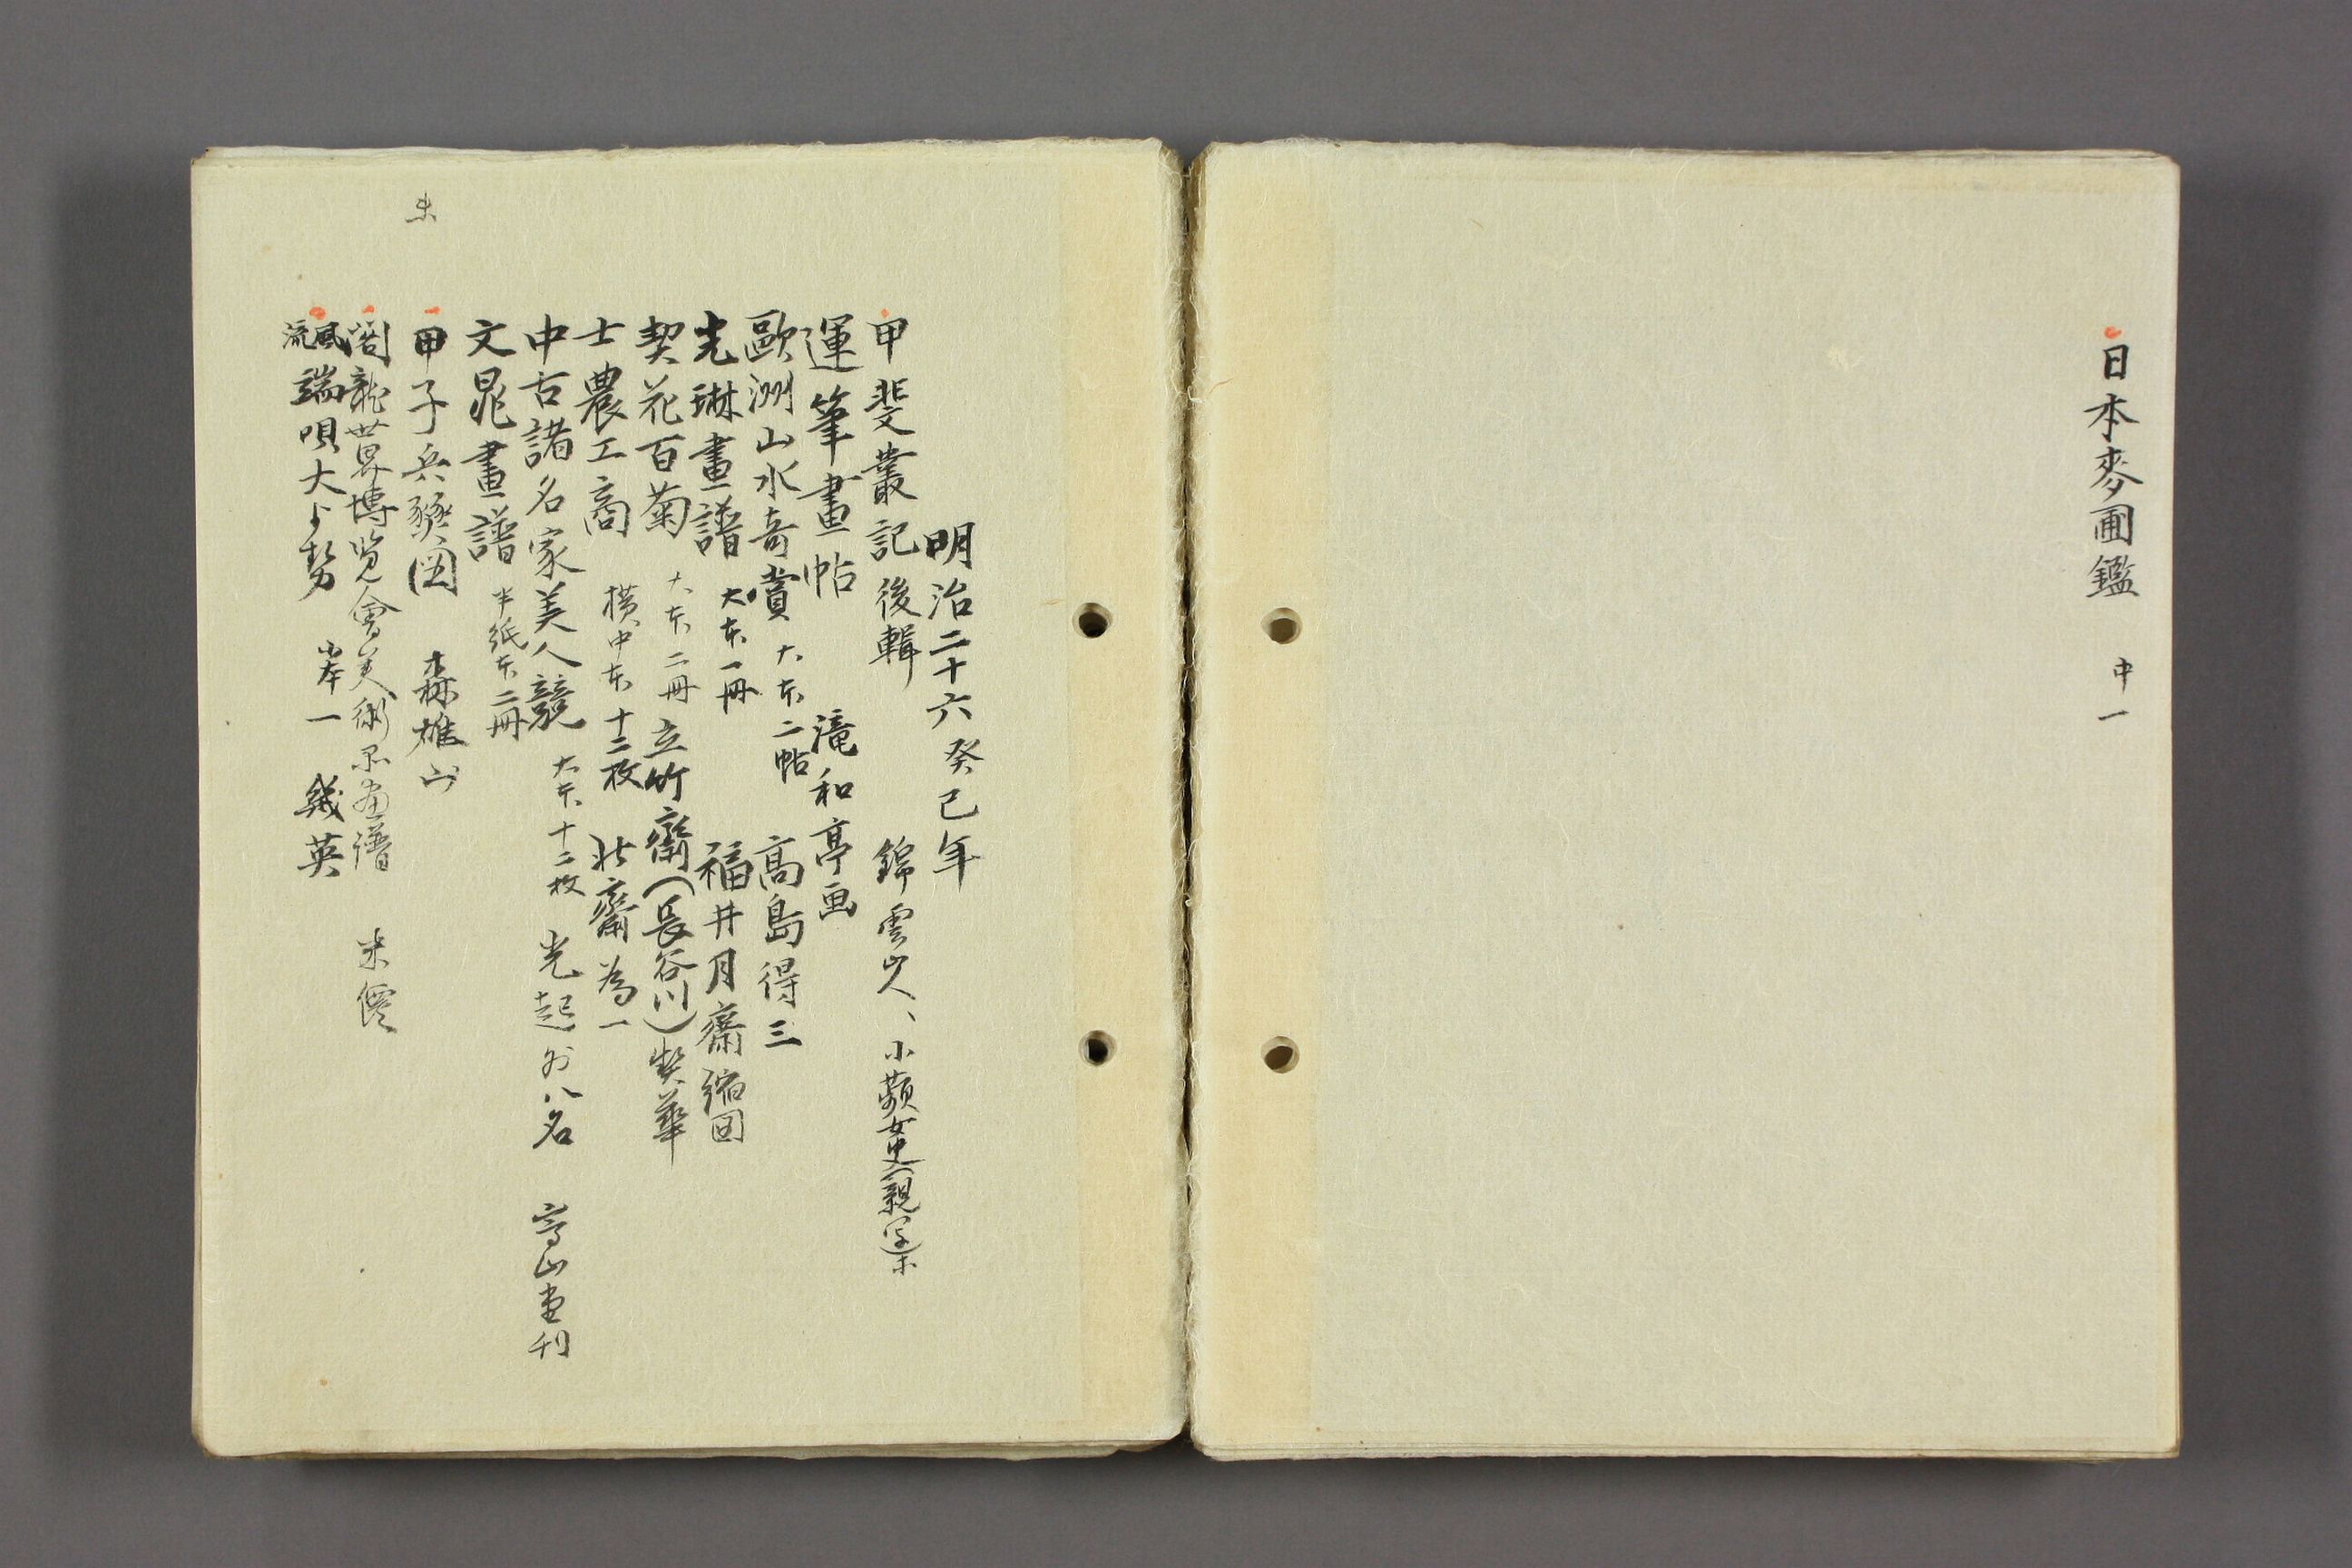 日本麥圃鑑 中一
明治二十六癸巳年
甲斐叢記後輯 錦雲山人、小蘋女史(親写)
運筆畫帖 滝和亭画
歐洲山水奇賞 大本二帖 高島得三
光琳畫譜 大本一冊 福井月齋縮図
契花百菊 大本二冊 立竹齋(長谷川)契華
士農工商 横中本 十二枚 北齋為一
中古諸名家美人競 大本十二枚 光起外八名 高山堂刊
文晁畫譜 半紙本二冊
未
甲子兵燹図 森雄山
閣龍世界博覧會美術品画譜 米僊
風流端唄大少勢 半一 幾英